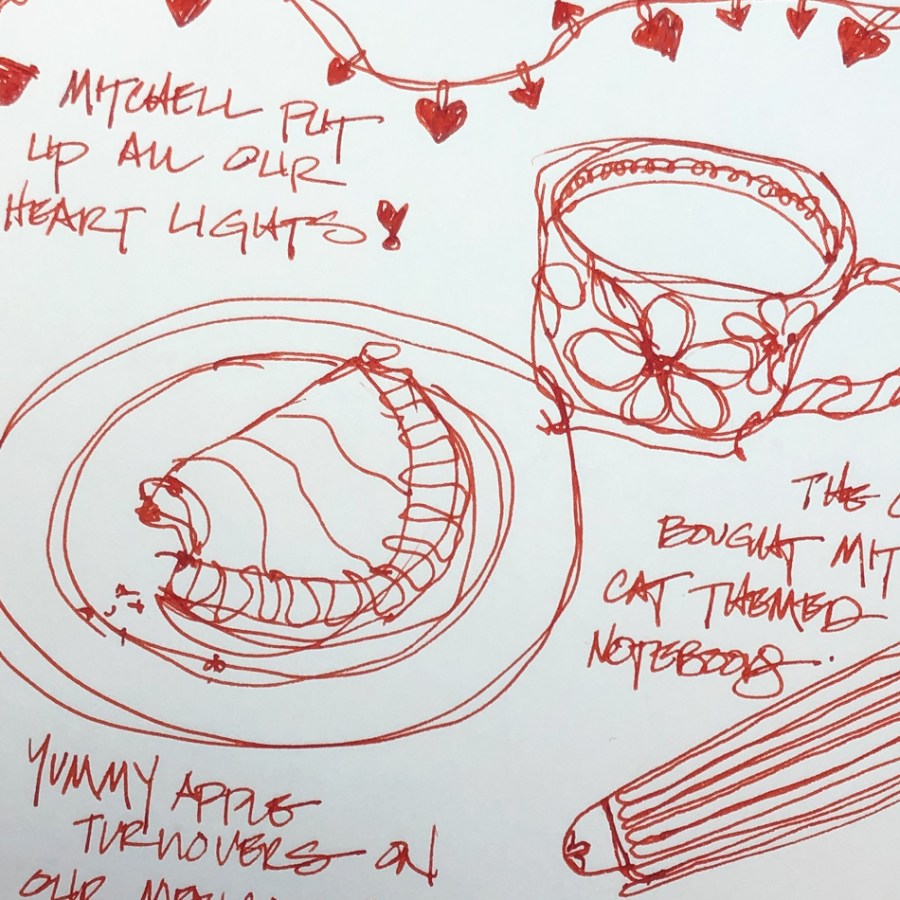 MITCHELL PUT
UP ALL OUR
HEART LIGHTS!
THE
BOUGHT MIT
CAT THEMED
NOTEBOOKS.
YUMMY APPLE
TURNOVERS ON
OUR